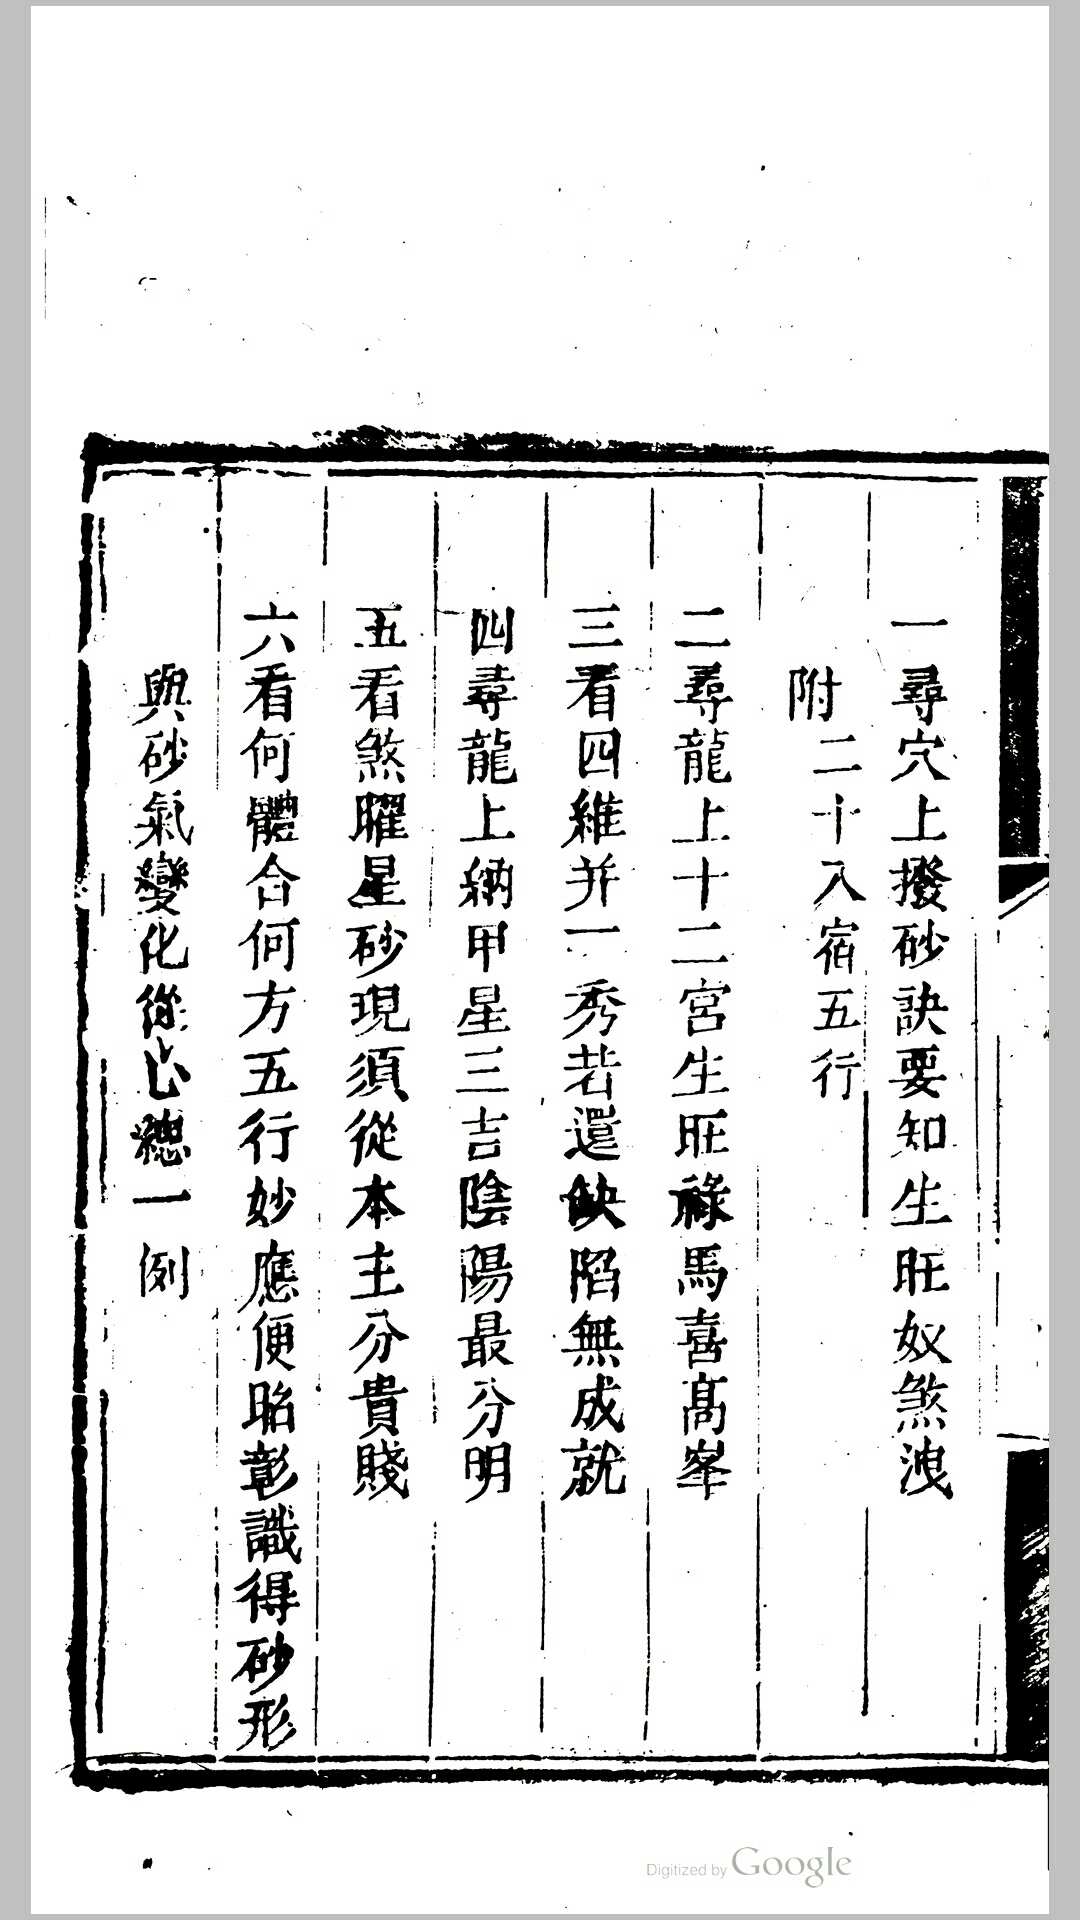 一尋穴上撥砂訣要知生旺奴煞洩
附二十八宿五行
二尋龍上十二宮生旺祿馬喜高峯
三看四維并一秀若還缺陷無成就
四尋龍上納甲星三吉陰陽最分明
五看煞曜星砂現須從本主分貴賤
六看何體合何方五行妙應便昭彰識得砂形
與砂氣變化從心總一例
Digitized by Google